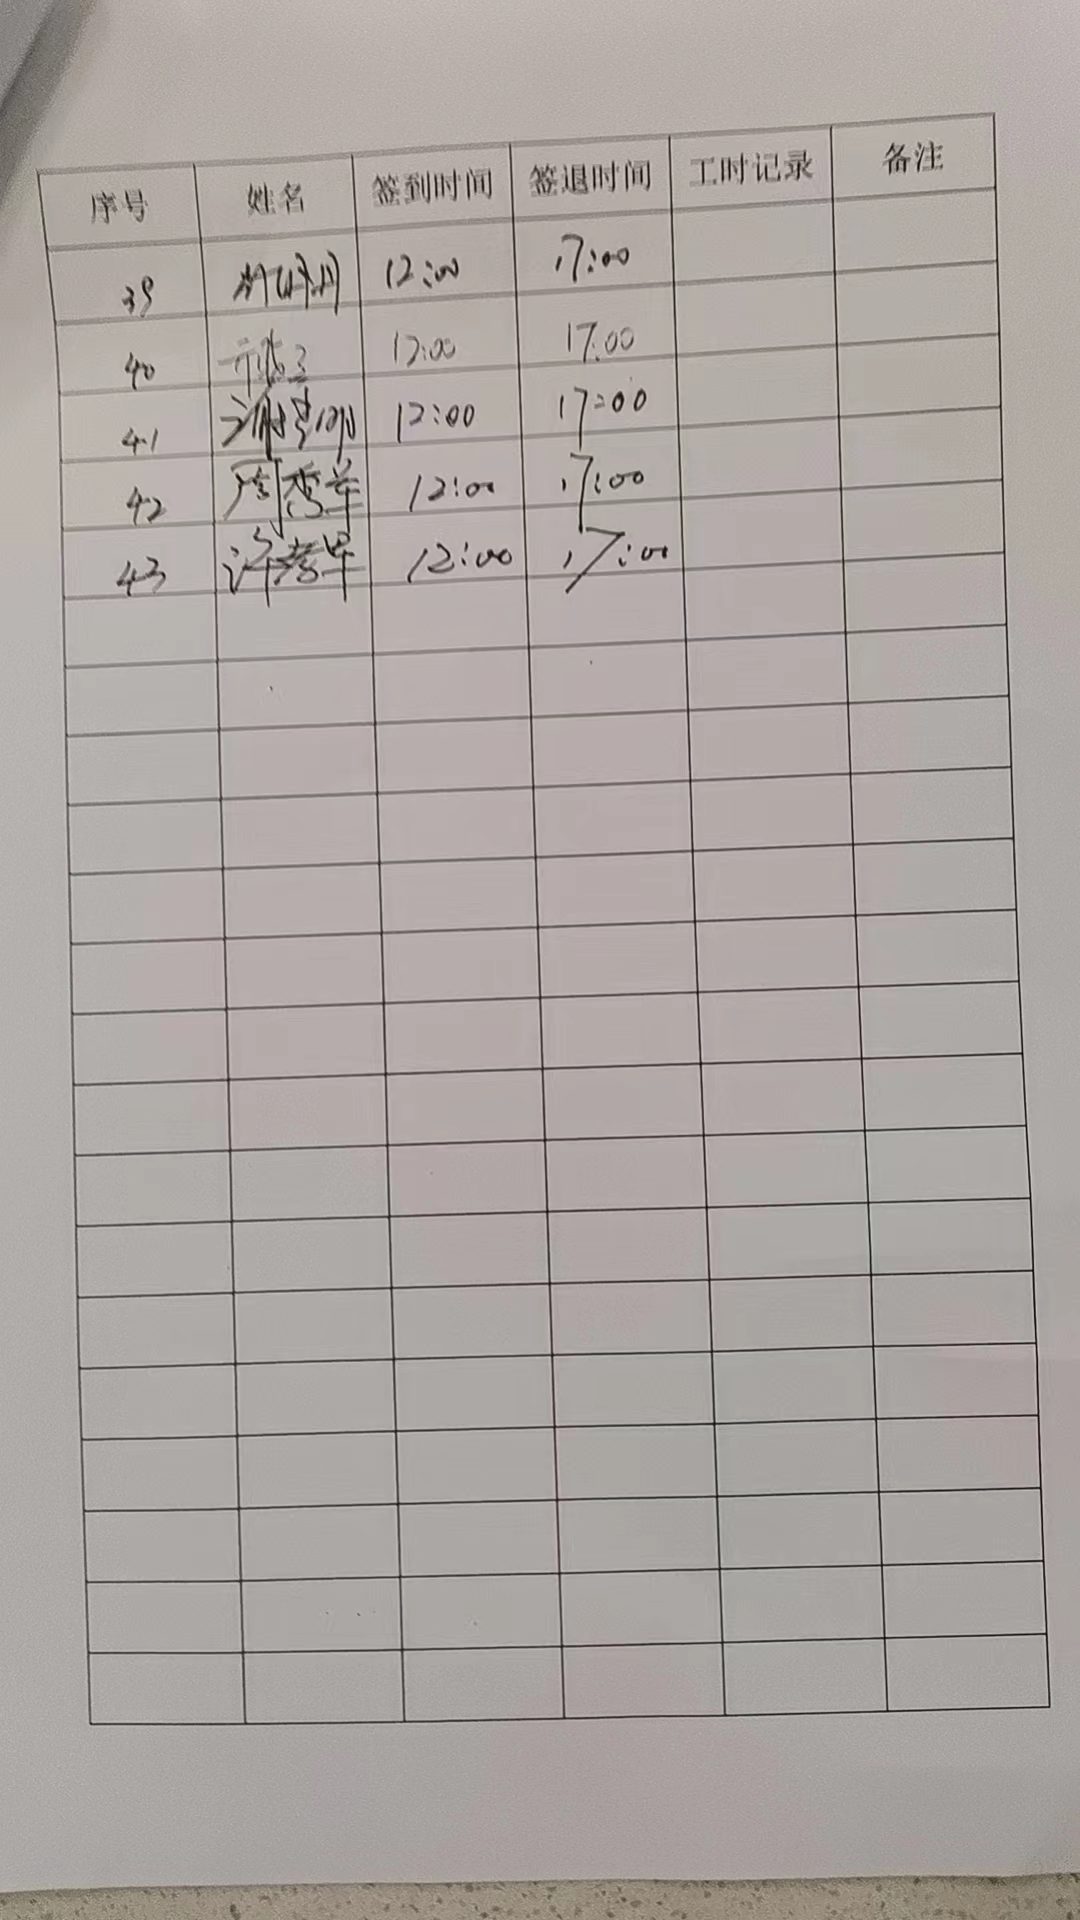 序号 姓名 签到时间 签退时间 工时记录 备注
39 12:00 17:00
40 12:00 17:00
41 12:00 17:00
42 周秀华 12:00 17:00
43 12:00 17:00